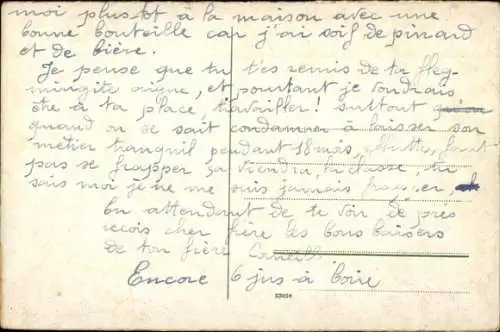 moi plustot à la maison avec une
bonne bouteille car j'ai soif de pinard
et de bière.
Je pense que tu t'es remis de ta fleg-
mingite aigue, et pourtant je voudrais
être à ta place, travailler! surtout
quand on se sait condamner à laisser son
métier tranquil pendant 18 mois, faut
pas se frapper sa viendra, la classe, tu
sais moi je ne me suis jamais
En attendant de te voir de près
recois cher frère les bons baisers
de ton frère
Encore 6 jus à boire